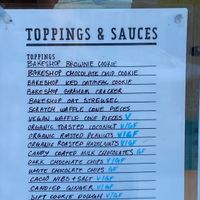 TOPPINGS & SAUCES
TOPPINGS
BAKESHOP BROWNIE COOKIE
BAKESHOP CHOCOLATE CHIP COOKIE
BAKESHOP ICED OATMEAL COOKIE
BAKESHOP GRAHAM CRACKER
BAKESHOP OAT STREUSEL
SCRATCH WAFFLE CONE PIECES
VEGAN WAFFLE CONE PIECES V
ORGANIC TOASTED COCONUT V/GF
ORGANIC ROASTED PEANUTS V/GF
ORGANIC ROASTED HAZELNUTS V/GF
CANDY COATED MILK CHOCOLATES GF
DARK CHOCOLATE CHIPS V/GF
WHITE CHOCOLATE CHIPS GF
CACAO NIBS + SALT V/GF
CANDIED GINGER V/GF
COOKIE DOUGH V/GF